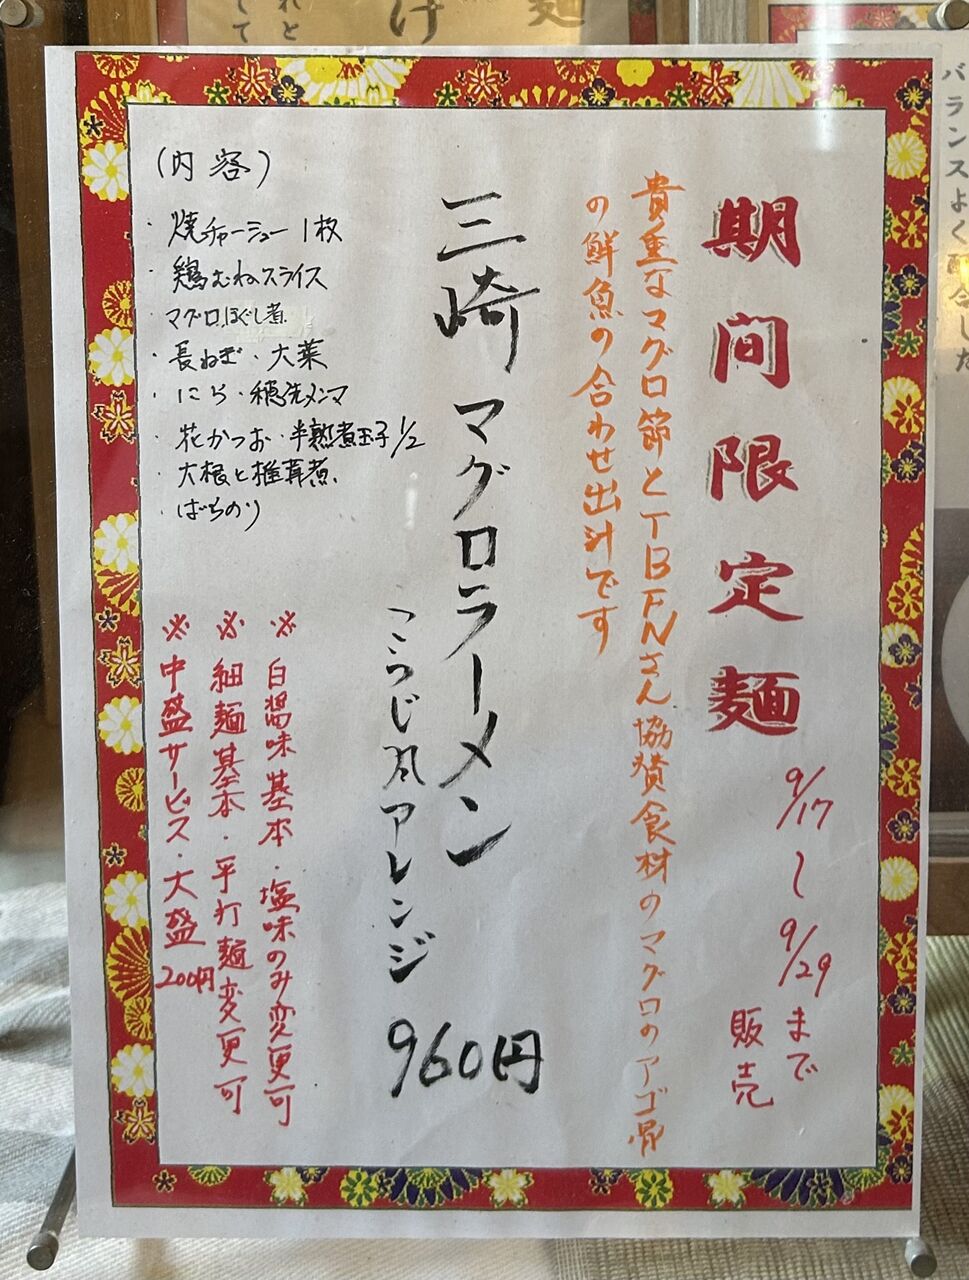 期間限定麺
9/17～9/29まで
販売
貴重なマグロ節とTBFNさん協賛食材のマグロのアゴ骨
の鮮魚の合わせ出汁です
三崎マグロラーメン
こうじ風アレンジ
960円
(内容)
・焼チャーシュー1枚
・鶏むねスライス
・マグロほぐし煮
・長ねぎ・大葉
・にら・穂先メンマ
・花かつお・半熟煮玉子1/2
・大根と椎茸煮
・ばらのり
※白醤味基本・塩味のみ変更可
※細麺基本・平打麺変更可
※中盛サービス・大盛200円
バランスよく配合した
れと
して
け
麺